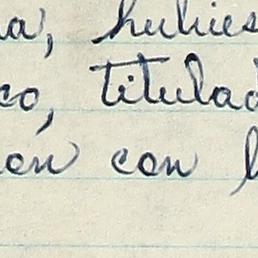 a, hubies
co, titulad
on con l